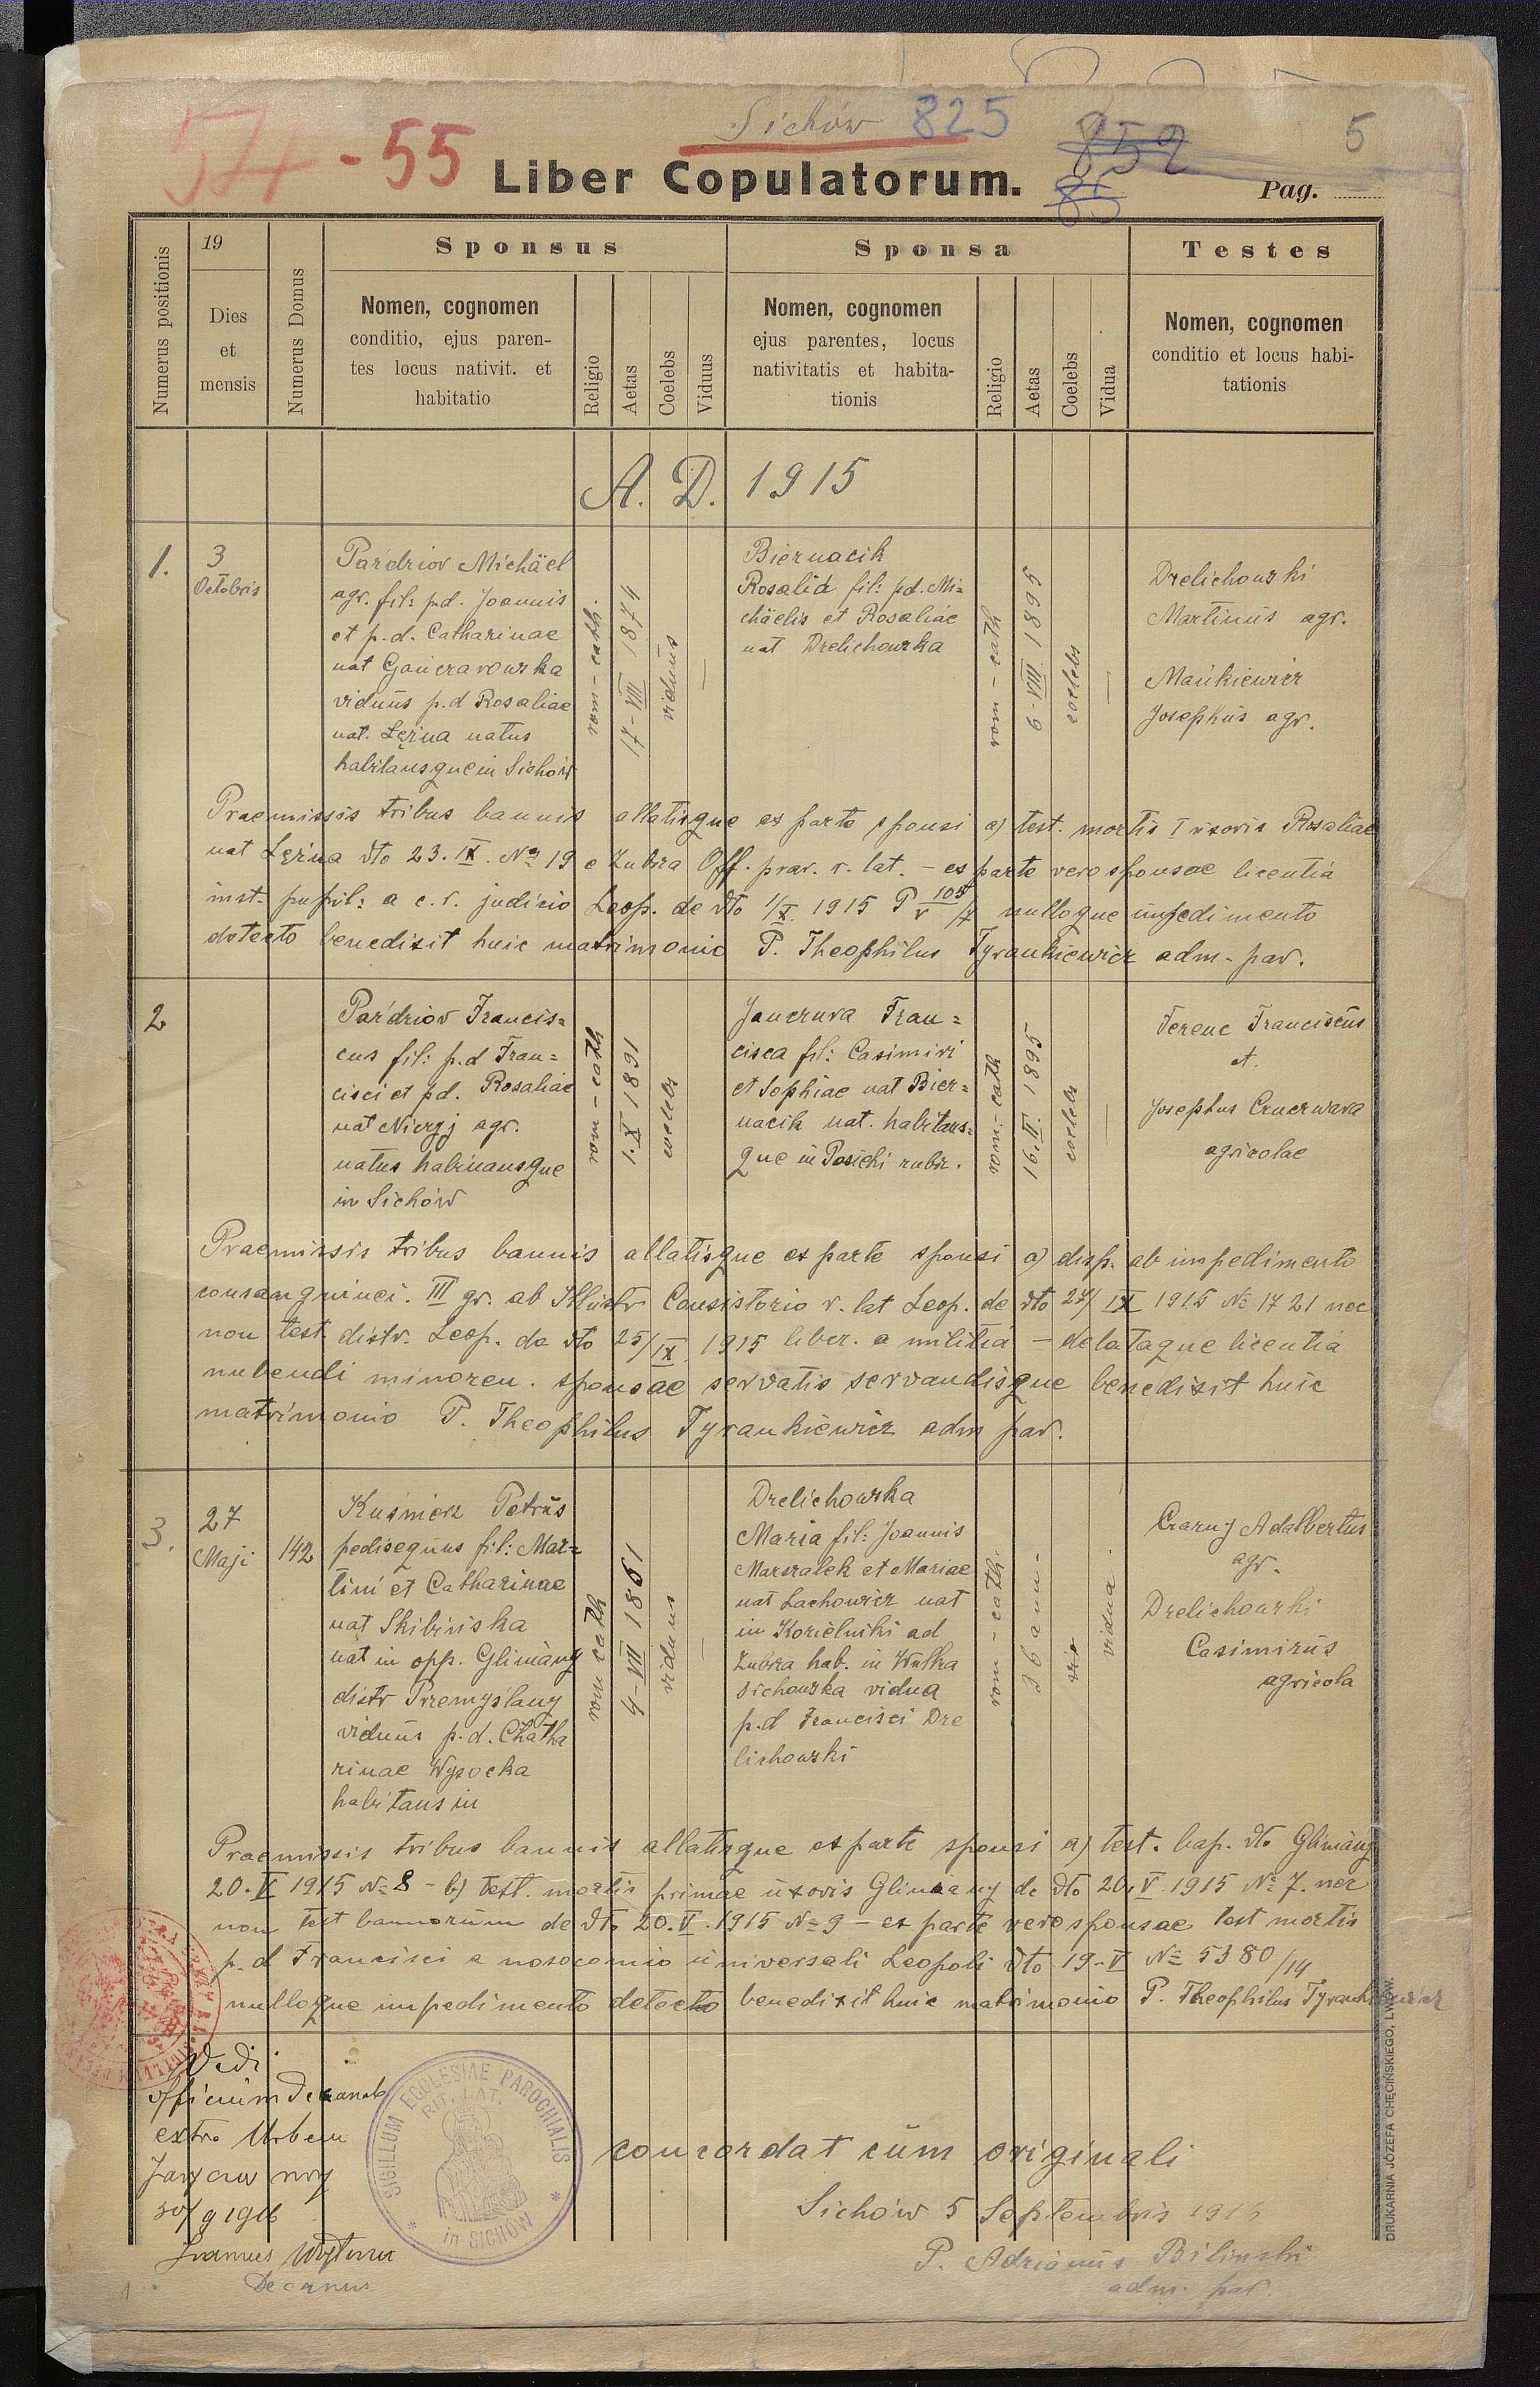 54 - 55
Sichów 825
852
85
5
Liber Copulatorum.
Pag.
Numerus positionis
19
Dies
et
mensis
Numerus Domus
Sponsus
Nomen, cognomen
conditio, ejus paren-
tes locus nativit. et
habitatio
Religio
Aetas
Coelebs
Viduus
Sponsa
Nomen, cognomen
ejus parentes, locus
nativitatis et habita-
tionis
Religio
Aetas
Coelebs
Vidua
Testes
Nomen, cognomen
conditio et locus habi-
tationis
A. D. 1915
1.
3
Octobris
Paździor Michäel
agr. fil: p.d. Joannis
et p.d. Catharinae
nat
viduus p.d Rosaliae
nat. Łęzna natus
habitansque in Sichów
rom-cath.
17-VIII 1874
viduus
Biernacik
Rosalia fil: p.d. Mi=
chäelis et Rosaliae
nat Drelichowska
rom-cath
6-VIII. 1895
coelebs
Drelichowski
Martinus agr.
Mańkiewicz
Josephus agr.
Praemissis tribus bannis allatisque ex parte sponsi a) test. mortis I uxoris Rosaliae
nat Łęzna dto 23. IX. № 19 e Zubrza Off. par. r. lat. - ex parte vero sponsae licentia
inst. pupil: a c. r. judicio Leop. de dto 1/X. 1915 P 105/V /7 nulloque impedimento
detecto benedixit huic matrimonio P. Theophilus Tyrankiewicz adm. par.
2
Paździor Francis=
cus fil: p.d Fran=
cisci et p.d. Rosaliae
nat agr.
natus habitansque
in Sichów
rom-cath
1. X 1891
coelebs
Janczura Fran=
cisca fil: Casimiri
et Sophiae nat Bier=
nacik nat. habitans=
que in Pasieki zubrz.
rom.-cath
16. II. 1895
coelebs
Ferenc Franciscus
et.
Josephus Czuczwara
agricolae
Praemissis tribus bannis allatisque ex parte sponsi a) disp. ab impedimento
consanguinei. III gr. ab Illustr Consistorio r. lat Leop. de dto 27/IX 1915 № 1721 nec
non test. distr. Leop. de dto 25/IX. 1915 liber. a militia - delataque licentia
nubendi minoren. sponsae servatis servandisque benedixit huic
matrimonio P. Theophilus Tyrankiewicz adm par.
3.
27
Maji
142
Kuśnierz Petrus
pedisequus fil: Mar=
tini et Catharinae
nat Skibińska
nat in opp. Gliniany
distr Przemyślany
viduus p.d. Chatha
rinae Wysocka
habitans in
rom cath
4-VII 1861
viduus
Drelichowska
Maria fil: Joannis
Marszałek et Mariae
nat Lachowicz nat
in Kozielniki ad
Zubrza hab. in Wulka
Sichowska vidua
p.d Francisci Dre
lichowski
rom-cath.
36 ann.
vidua
Czarny Adalbertus
agr.
Drelichowski
Casimirus
agricola
Praemissis tribus bannis allatisque ex parte sponsi a) test. bap. dto Gliniany
20. V 1915 № 8 - b) test. mortis primae uxoris Gliniany de dto 20. V. 1915 № 7. nec
non test bannorum de dto 20. V. 1915 № 9 - ex parte vero sponsae test mortis
p.d Francisci a nosocomio universali Leopoli dto 19-V № 5380/14
nulloque impedimento detecto benedixit huic matrimonio P. Theophilus Tyrankiewicz
Vidi.
Officium Decanale
extra Urbem
30/9 1916
Decanus
SIGILLUM ECCLESIAE PAROCHIALIS
RIT. LAT.
in SICHÓW
concordat cum originali
Sichów 5 Septembris 1916
P. Adrianus Bilinski
adm. par.
DRUKARNIA JÓZEFA CHĘCIŃSKIEGO, LWÓW.